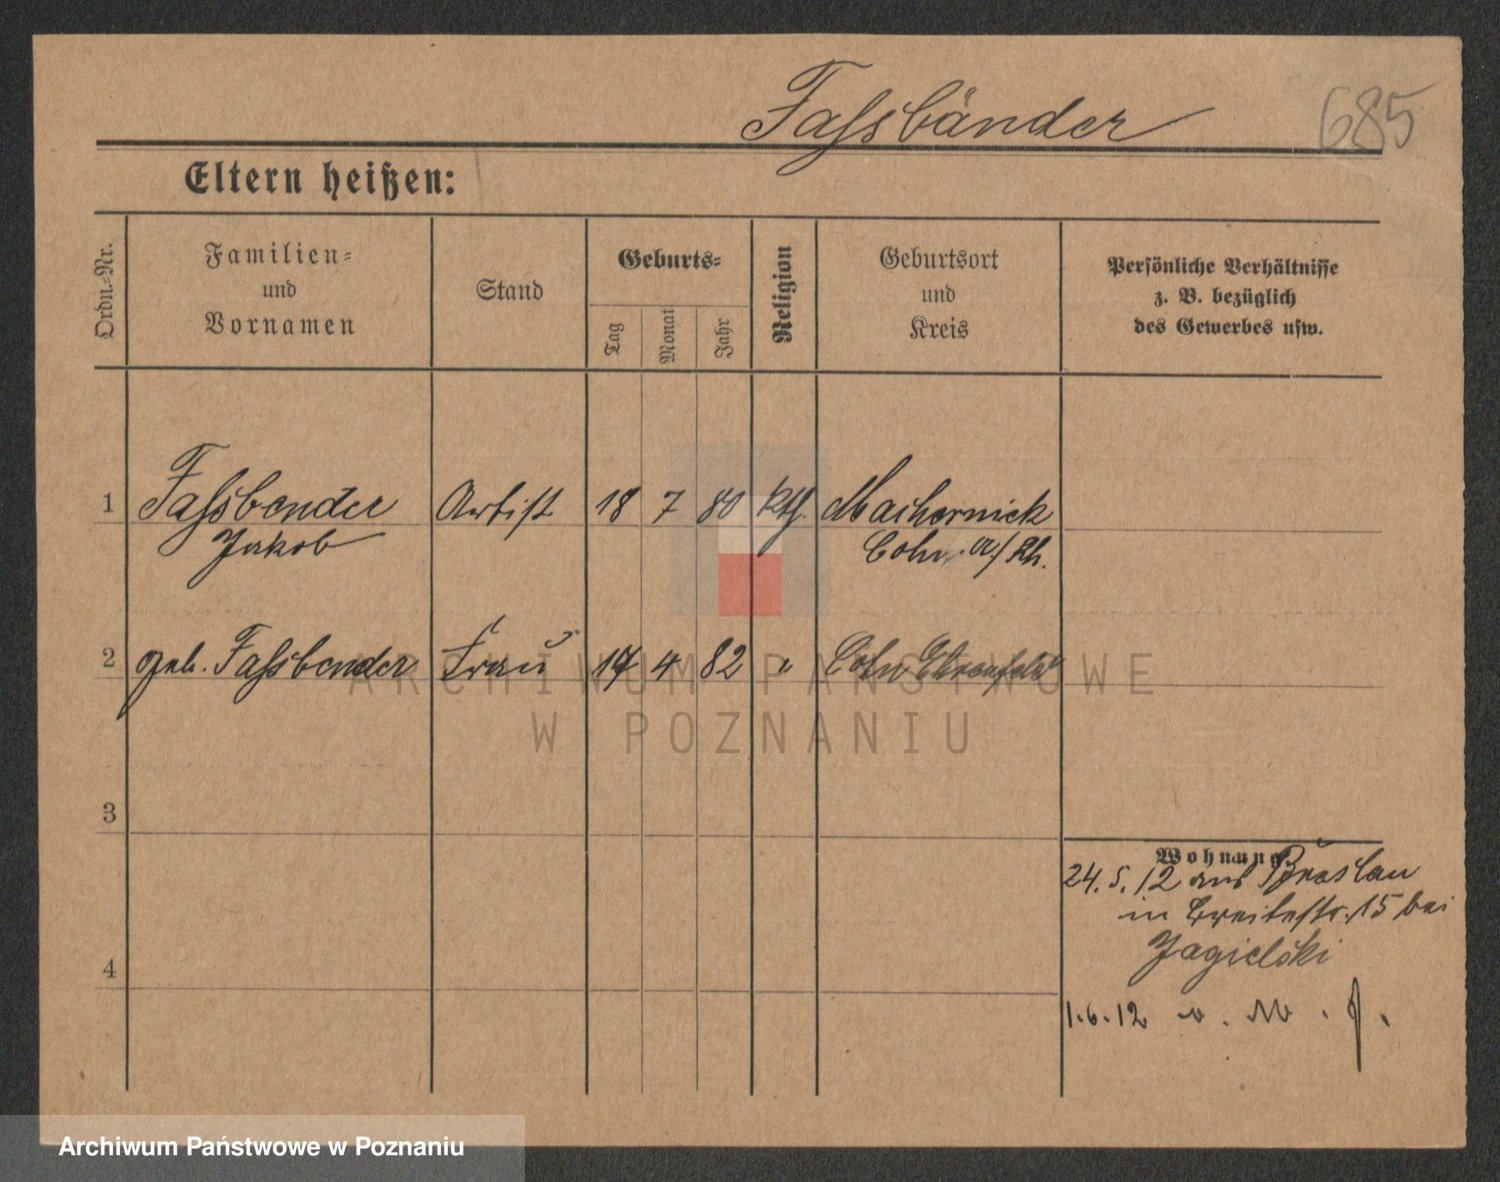 Fassbänder
685
Eltern heißen:
Ordn.-Nr.
Familien-
und
Vornamen
Stand
Geburts-
Tag
Monat
Jahr
Religion
Geburtsort
und
Kreis
Persönliche Verhältnisse
z. B. bezüglich
des Gewerbes usw.
1 Fassbender Artist 18 7 80 kth.
Jakob Cöln a/Rh.
2 geb. Fassbender Frau 4 82 " Cöln Ehrenfeld
3
Wohnung
24.5.12 aus Breslau
in Breitestr. 15 bei
Jagielski
4
1.6.12
ARCHIWUM PAŃSTWOWE
W POZNANIU
Archiwum Państwowe w Poznaniu